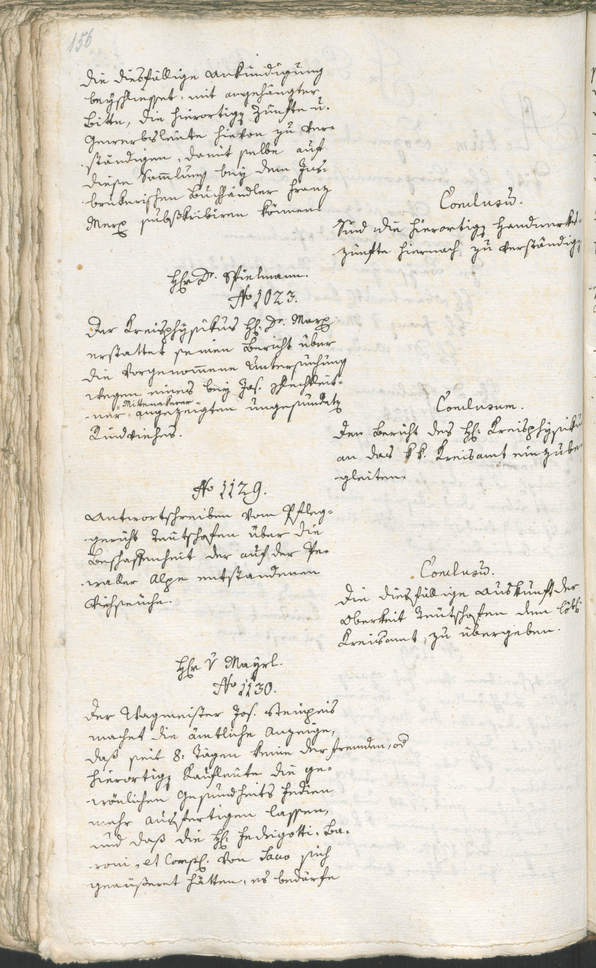 156
die diesfällige Ankündigung
beyschliesset, mit angehängter
Bitte, die hierortigen Zünfte u.
Gewerbsleute hievon zu ver-
ständigen, damit selbe auf
diese Sammlung bey dem Inns-
bruckerischen Buchhändler Franz
subskribiren können
Conclusum.
Sind die hierortigen Handwerks-
zünfte hiernach zu verständigen
Hr. Dr. Spielmann.
No 1023.
Der Kreisphysikus H. Dr.
erstattet seinen Bericht über
die vorgenommene Untersuchung
wegen eines bey Jos.
angezeigten ungesunden
Rindviehes.
Conclusum.
Den Bericht des H. Kreisphysikus
an das kk. Kreisamt einzube-
gleiten.
No 1129.
Antwortschreiben vom Pfleg-
gericht Teutschofen über die
Beschaffenheit der auf der
Alpe entstandenen
Viehseuche.
Conclusum.
Die diesfällige Auskunft der
Obrigkeit Teutschofen dem löbl.
Kreisamt zu übergeben.
Hr. v Mayrl.
No 1130.
Der Wagmeister Jos.
machet die ämtliche Anzeige,
daß seit 8 Tagen keine der fremden, od
hierortigen Kaufleute die ge-
wönlichen Gesundheits Feden
mehr ausfertigen lassen,
und daß die H. Fedrigotti, Ba-
roni, et Comp. von Saco sich
geäußeret hätten, es bedürfe